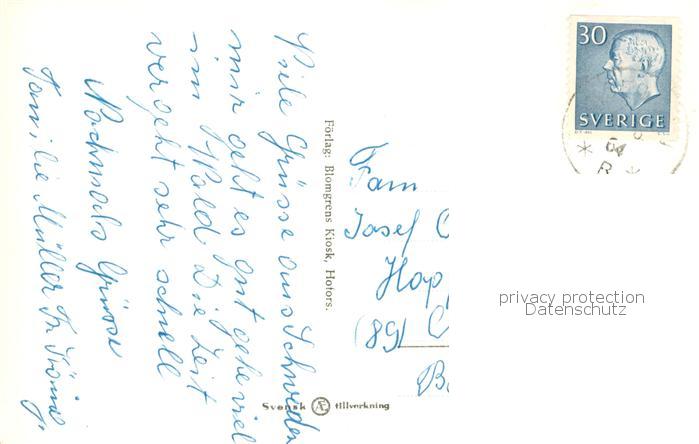 Viele Grüsse aus Schweden
mir geht es gut gehe viel
im Wald Die Zeit
vergeht sehr schnell
Nochmals Grüsse
Familie Müller
Förlag: Blomgrens Kiosk, Hofors.
Svensk AE tillverkning
Fam
Josef
Hop
(89)
30
SVERIGE
privacy protection
Datenschutz